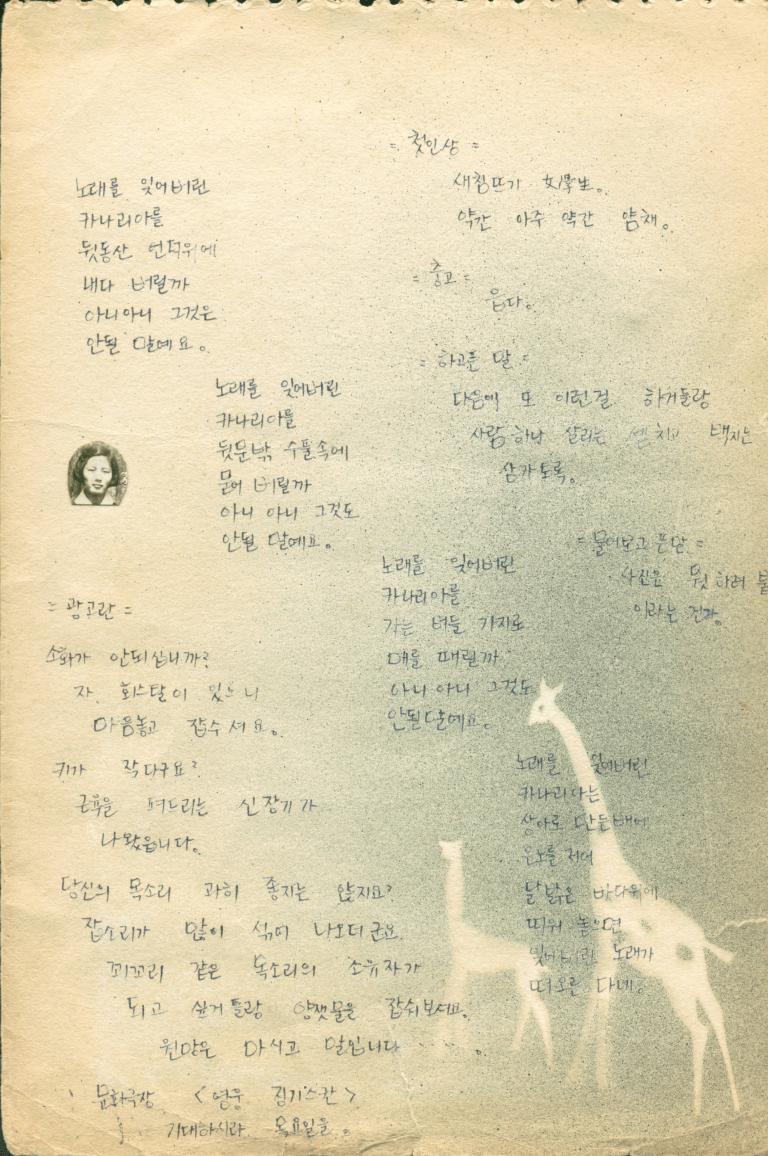 노래를 잊어버린
카나리아를
뒷동산 언덕위에
내다 버릴까
아니아니 그것은
안될 말예요.
노래를 잊어버린
카나리아를
뒷문밖 수풀속에
묻어 버릴까
아니 아니 그것도
안될 말예요.
노래를 잊어버린
카나리아를
가는 버들 가지로
매를 때릴까
아니 아니 그것도
안될말예요.
노래를 잊어버린
카나리아는
상아로 만든배에
은노를 저어
달 밝은 바다위에
띠워 놓으면
잊어버린 노래가
떠오른 다네.
= 첫인상 =
새침뜨기 女學生.
약간 아주 약간 얌체.
= 충고 =
읍다.
= 하고픈 말 =
다음에 또 이런걸 하거들랑
사람 하나 살리는 셈 치고 백지는
삼가토록.
= 물어보고픈말 =
사진은 뭣 하려 붙
이라는 건가.
= 광고란 =
소화가 안되십니까?
자. 훼스탈이 있으니
마음놓고 잡수셔요.
키가 작다구요?
근육을 펴드리는 신장기가
나왔읍니다.
당신의 목소리 과히 좋지는 않지요?
잡소리가 많이 섞여 나오더군요.
꾀꼬리 같은 목소리의 소유자가
되고 싶거들랑 양잿물을 잡숴보셔요.
원만은 마시고 말입니다.
문화극장 <영웅 징기스칸>
기대하시라 목요일을.